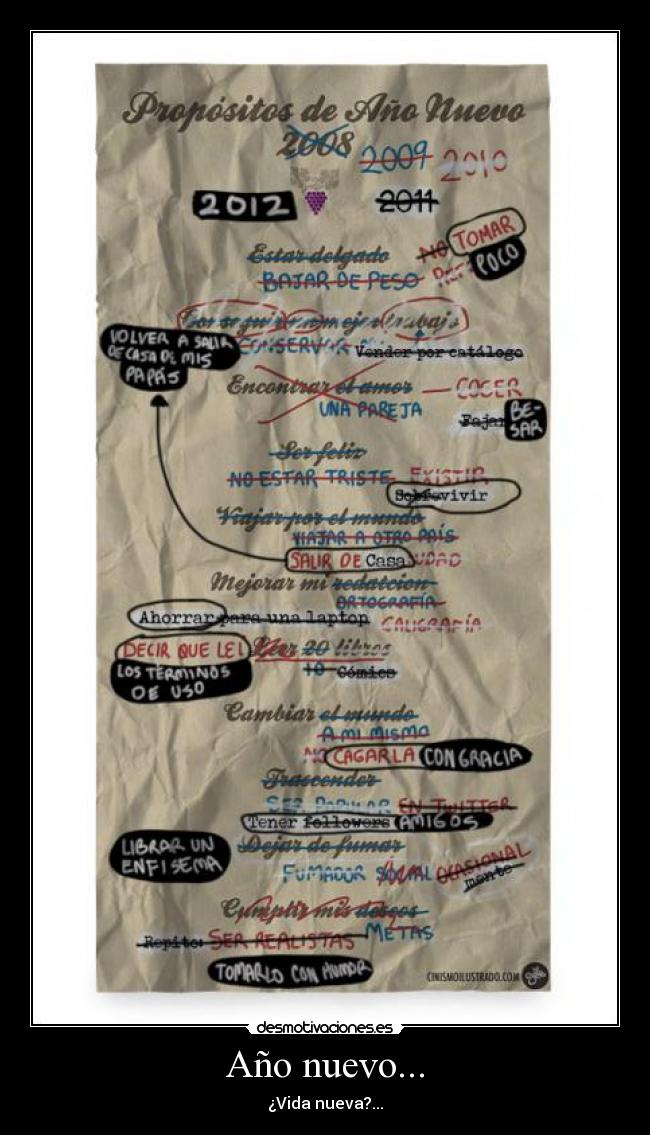 Propósitos de Año Nuevo
2008 2009 2010
2012 2011
Estar delgado NO TOMAR
BAJAR DE PESO POCO
Conseguir un mejor trabajo
VOLVER A SALIR
DE CASA DE MIS
PAPÁS
CONSERVAR Vender por catálogo
Encontrar el amor — COGER
UNA PAREJA Fajar BE-
SAR
Ser feliz
NO ESTAR TRISTE EXISTIR
Sobrevivir
Viajar por el mundo
VIAJAR A OTRO PAÍS
SALIR DE Casa UDAD
Mejorar mi redatcion
ORTOGRAFÍA
Ahorrar para una laptop CALIGRAFÍA
DECIR QUE LEI Leer 20 libros
LOS TÉRMINOS
DE USO
10 Cómics
Cambiar el mundo
A MI MISMO
NO CAGARLA CON GRACIA
Trascender
SER POPULAR EN TWITTER
Tener followers AMIGOS
LIBRAR UN
ENFISEMA
Dejar de fumar
FUMADOR SOCIAL OCASIONAL
mente
Cumplir mis deseos
METAS
Repito: SER REALISTAS
TOMARLO CON HUMOR
CINISMOILUSTRADO.COM
desmotivaciones.es
Año nuevo...
¿Vida nueva?...